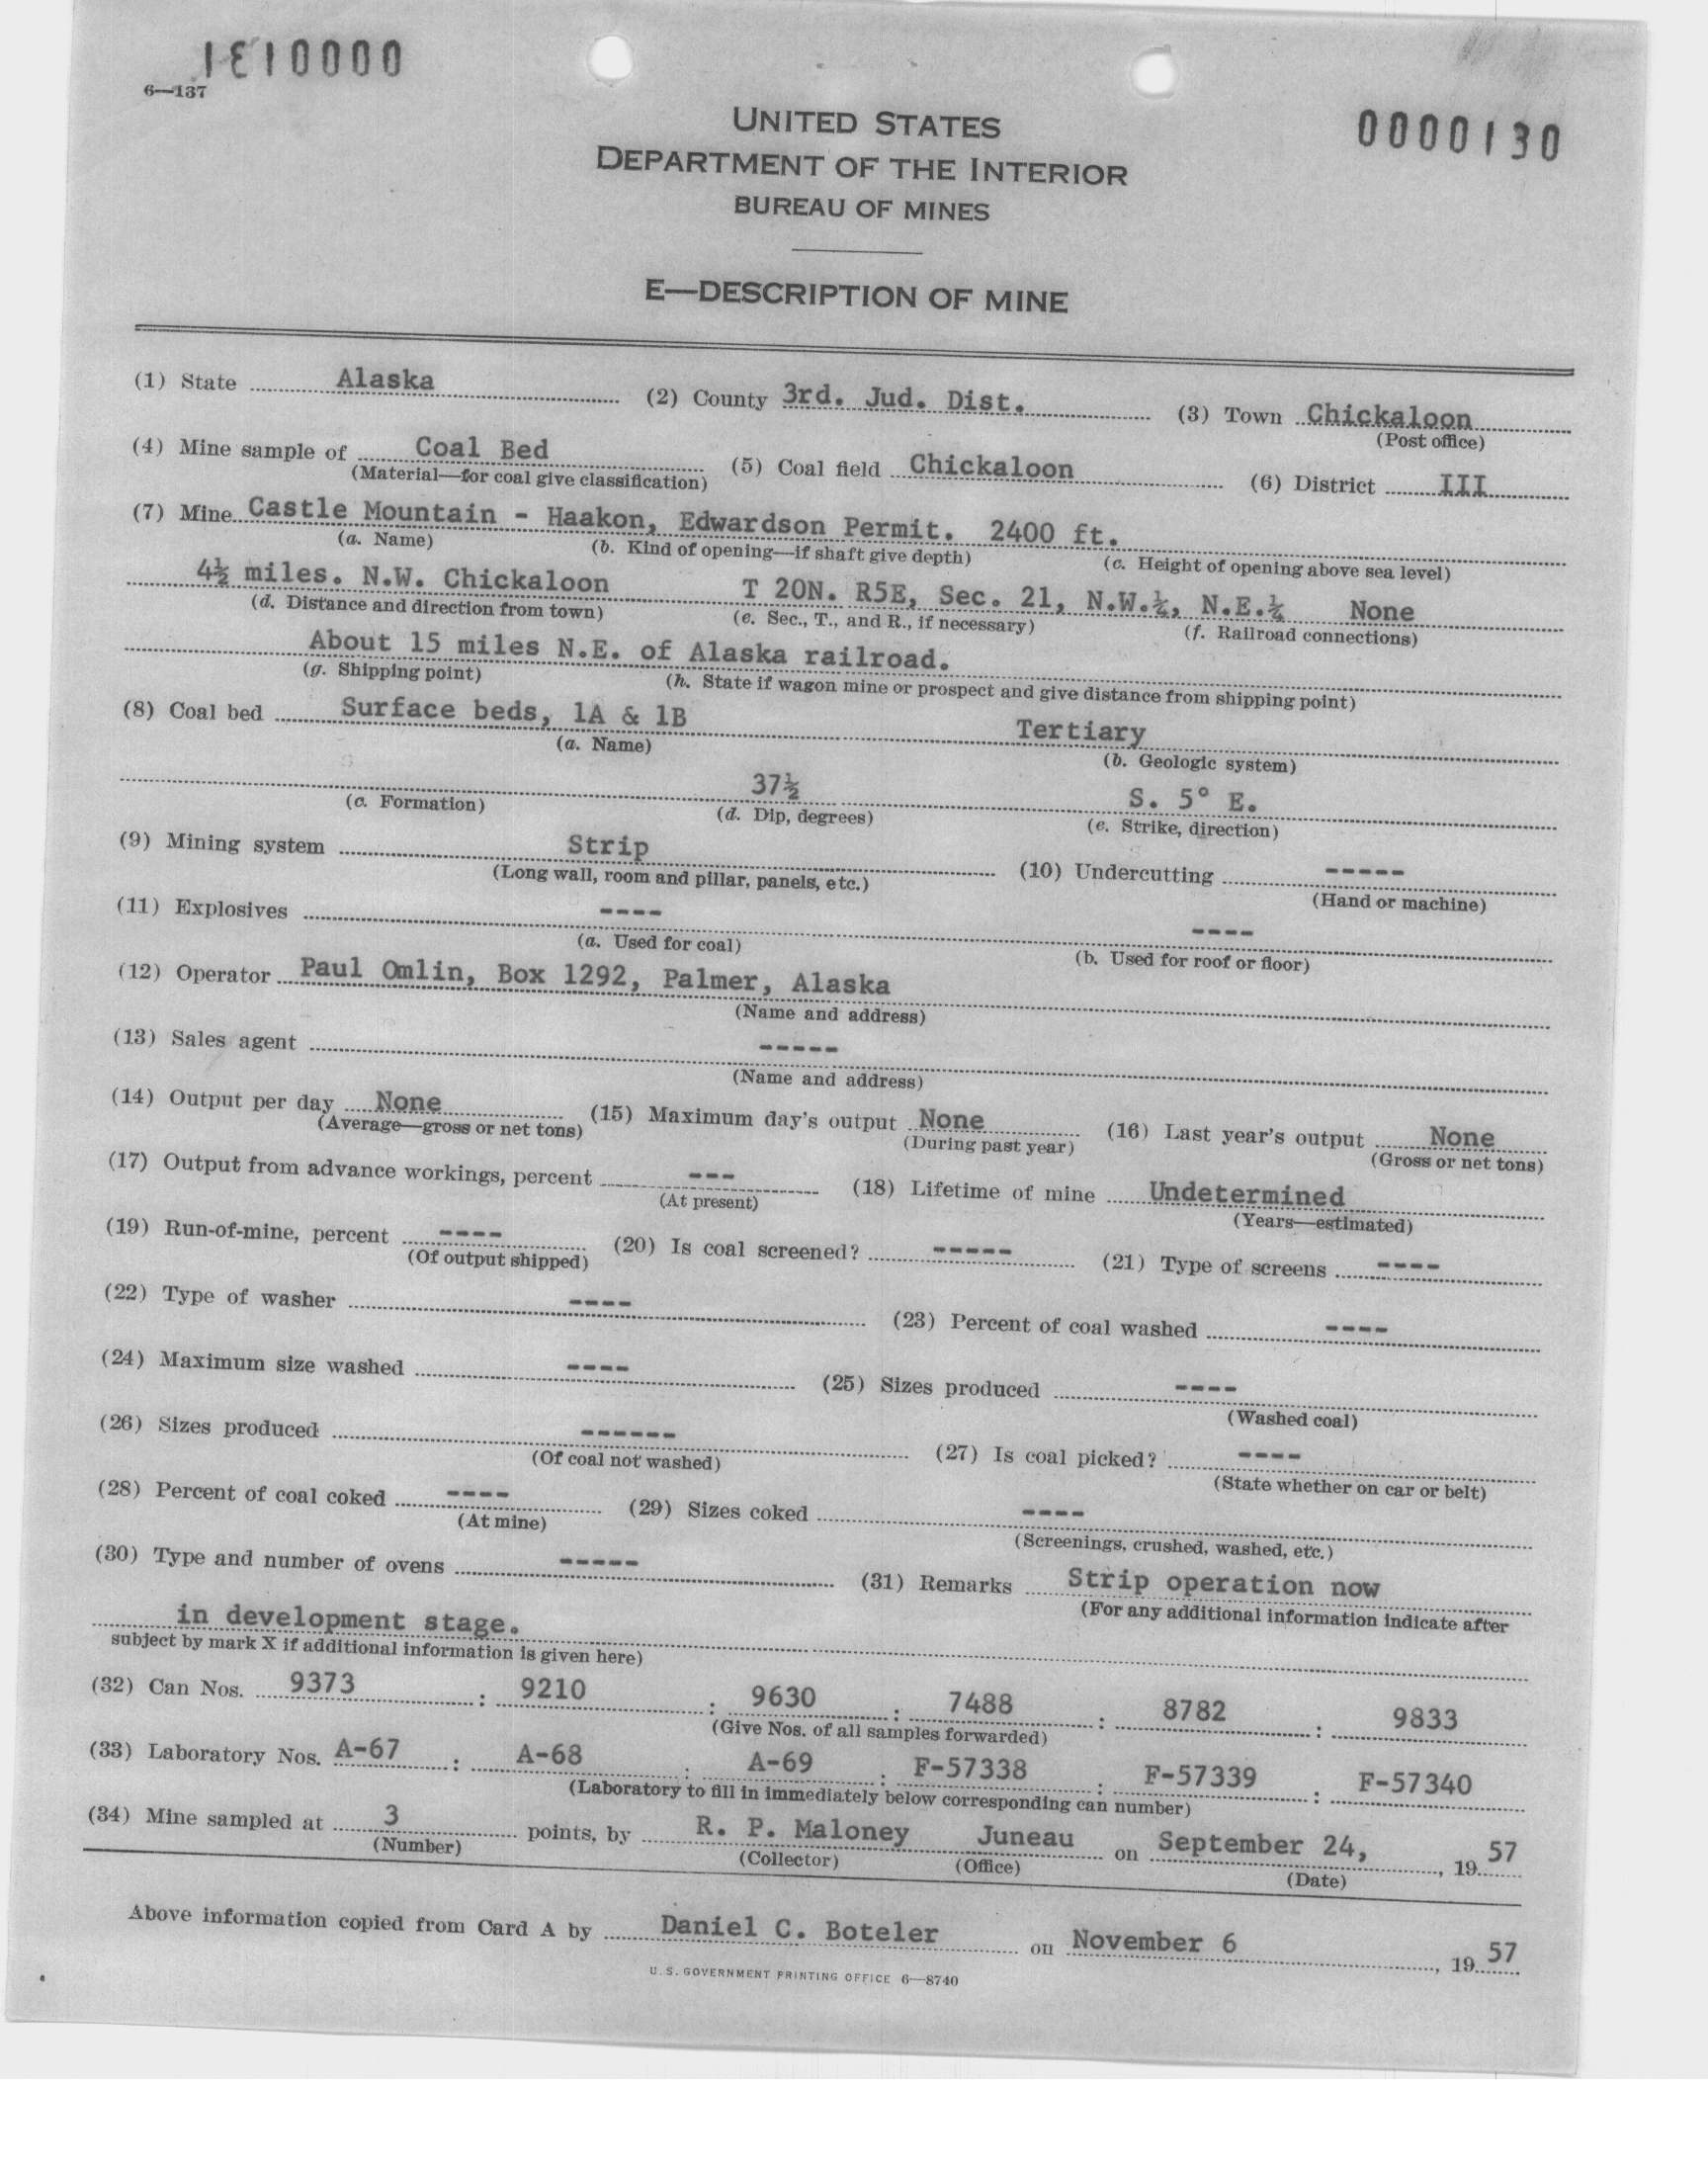 0000131
6—137
0000130
UNITED STATES
DEPARTMENT OF THE INTERIOR
BUREAU OF MINES
E—DESCRIPTION OF MINE
(1) State Alaska (2) County 3rd. Jud. Dist. (3) Town Chickaloon
(Post office)
(4) Mine sample of Coal Bed (5) Coal field Chickaloon (6) District III
(Material—for coal give classification)
(7) Mine Castle Mountain - Haakon, Edwardson Permit. 2400 ft.
(a. Name) (b. Kind of opening—if shaft give depth) (c. Height of opening above sea level)
4½ miles. N.W. Chickaloon T 20N. R5E, Sec. 21, N.W.¼, N.E.¼ None
(d. Distance and direction from town) (e. Sec., T., and R., if necessary) (f. Railroad connections)
About 15 miles N.E. of Alaska railroad.
(g. Shipping point) (h. State if wagon mine or prospect and give distance from shipping point)
(8) Coal bed Surface beds, 1A & 1B Tertiary
(a. Name) (b. Geologic system)
37½ S. 5° E.
(c. Formation) (d. Dip, degrees) (e. Strike, direction)
(9) Mining system Strip (10) Undercutting -----
(Long wall, room and pillar, panels, etc.) (Hand or machine)
(11) Explosives ---- ----
(a. Used for coal) (b. Used for roof or floor)
(12) Operator Paul Omlin, Box 1292, Palmer, Alaska
(Name and address)
(13) Sales agent -----
(Name and address)
(14) Output per day None (15) Maximum day's output None (16) Last year's output None
(Average—gross or net tons) (During past year) (Gross or net tons)
(17) Output from advance workings, percent --- (18) Lifetime of mine Undetermined
(At present) (Years—estimated)
(19) Run-of-mine, percent ---- (20) Is coal screened? ----- (21) Type of screens ----
(Of output shipped)
(22) Type of washer ---- (23) Percent of coal washed ----
(24) Maximum size washed ---- (25) Sizes produced ----
(Washed coal)
(26) Sizes produced ------ (27) Is coal picked? ----
(Of coal not washed) (State whether on car or belt)
(28) Percent of coal coked ---- (29) Sizes coked ----
(At mine) (Screenings, crushed, washed, etc.)
(30) Type and number of ovens ----- (31) Remarks Strip operation now
(For any additional information indicate after
in development stage.
subject by mark X if additional information is given here)
(32) Can Nos. 9373 : 9210 : 9630 : 7488 : 8782 : 9833
(Give Nos. of all samples forwarded)
(33) Laboratory Nos. A-67 : A-68 : A-69 : F-57338 : F-57339 : F-57340
(Laboratory to fill in immediately below corresponding can number)
(34) Mine sampled at 3 points, by R. P. Maloney Juneau on September 24, , 19 57
(Number) (Collector) (Office) (Date)
Above information copied from Card A by Daniel C. Boteler on November 6 , 19 57
U. S. GOVERNMENT PRINTING OFFICE 6—8740